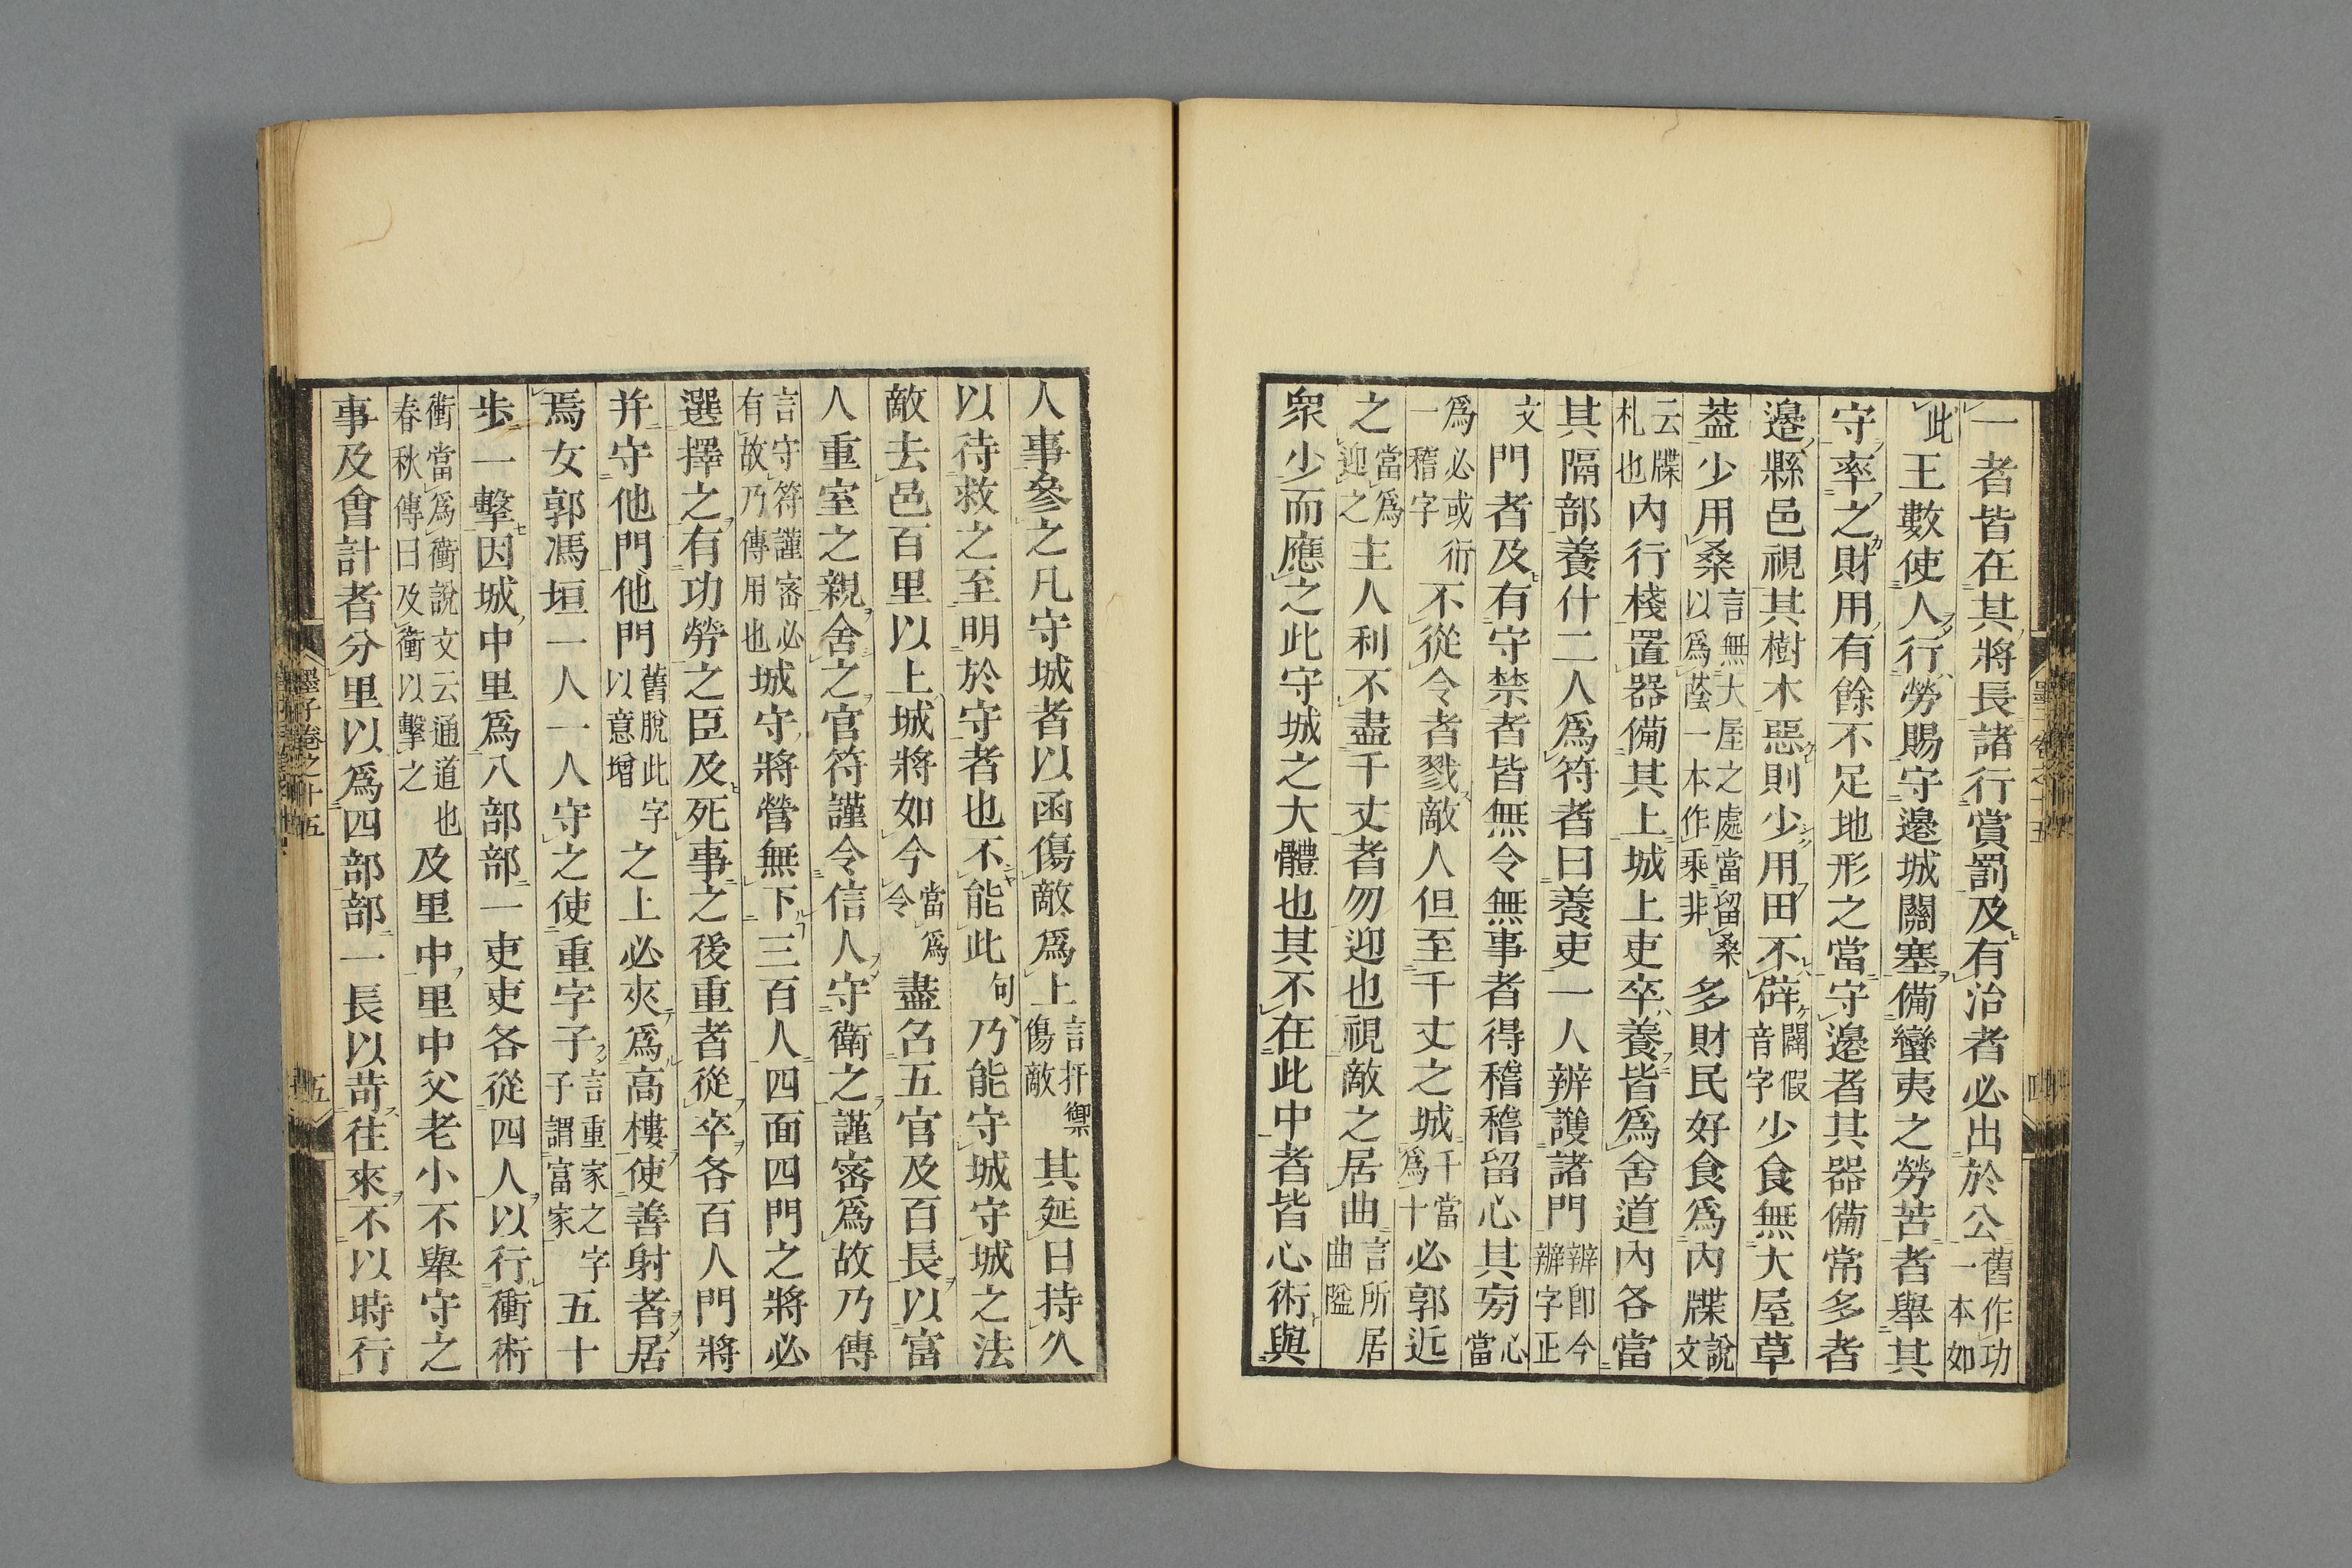 一者皆在其將長諸行賞罰及有治者必出於公舊作功一本如
此王數使人行勞賜守邊城關塞備蠻夷之勞苦者舉其
守率之財用有餘不足地形之當守邊者其器備常多者
邊縣邑視其樹木惡則少用田不辟闢假音字少食無大屋草
葢少用桑言無大屋之處當留桑以爲蔭一本作乘非多財民好食爲內牒說文
云牒札也內行棧置器備其上城上吏卒養皆爲舍道內各當
其隔部養什二人爲符者曰養吏一人辨護諸門辨卽今辦字正
文門者及有守禁者皆無令無事者得稽稽留心其旁心當
爲必或術一稽字不從令者戮敵人但至千丈之城千當爲十必郭近
之當爲迎之主人利不盡千丈者勿迎也視敵之居曲言所居曲隘
衆少而應之此守城之大體也其不在此中者皆心術與
人事參之凡守城者以函傷敵爲上言扞禦傷敵其延日持久
以待救之至明於守者也不能此句乃能守城守城之法
敵去邑百里以上城將如今當爲令盡召五官及百長以富
人重室之親舍之官符謹令信人守衛之謹密爲故乃傳
言守符謹密必有故乃傳用也城守將營無下三百人四面四門之將必
選擇之有功勞之臣及死事之後重者從卒各百人門將
并守他門他門舊脫此字以意增之上必夾爲高樓使善射者居
焉女郭馮垣一人一人守之使重字子言重家之字子謂富家五十
步一擊因城中里爲八部部一吏吏各從四人以行衝術
衝當爲衝說文云通道也春秋傳曰及衝以擊之及里中里中父老小不舉守之
事及會計者分里以爲四部部一長以苛往來不以時行
墨子卷之十五
五